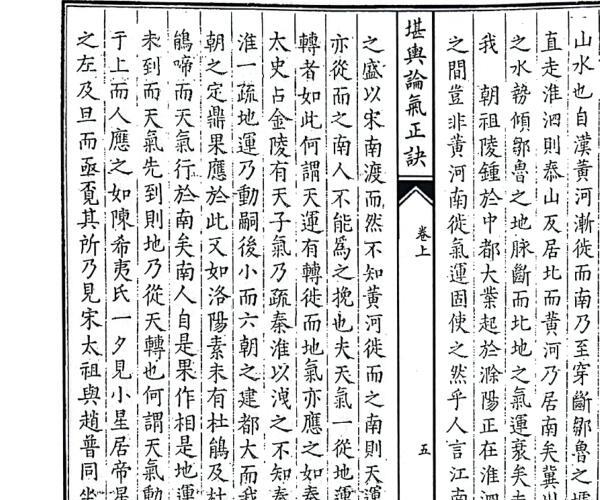 山水也自漢黃河漸徙而南乃至穿斷鄒魯之
直走淮泗則泰山反居北而黃河乃居南矣冀
之水勢傾鄒魯之地脉斷而北地之氣運衰矣
我　朝祖陵鍾於中都大業起於滁陽正在淮
之間豈非黃河南徙氣運固使之然乎人言江南
堪輿論氣正訣　卷上　五
之盛以宋南渡而然不知黃河徙而之南則天運
亦從而之南人不能為之挽也夫天氣一從地
轉者如此何謂天運有轉徙而地氣亦應之如秦
太史占金陵有天子氣乃疏秦淮以洩之不知秦
淮一疏地運乃動嗣後小而六朝之建都大而我
朝之定鼎果應於此又如洛陽素未有杜鵑及杜
鵑啼而天氣行於南矣南人自是果作相是地運
未到而天氣先到則地乃從天轉也何謂天氣動
于上而人應之如陳希夷氏一夕見小星居帝星
之左及旦而亟覔其所乃見宋太祖與趙普同坐